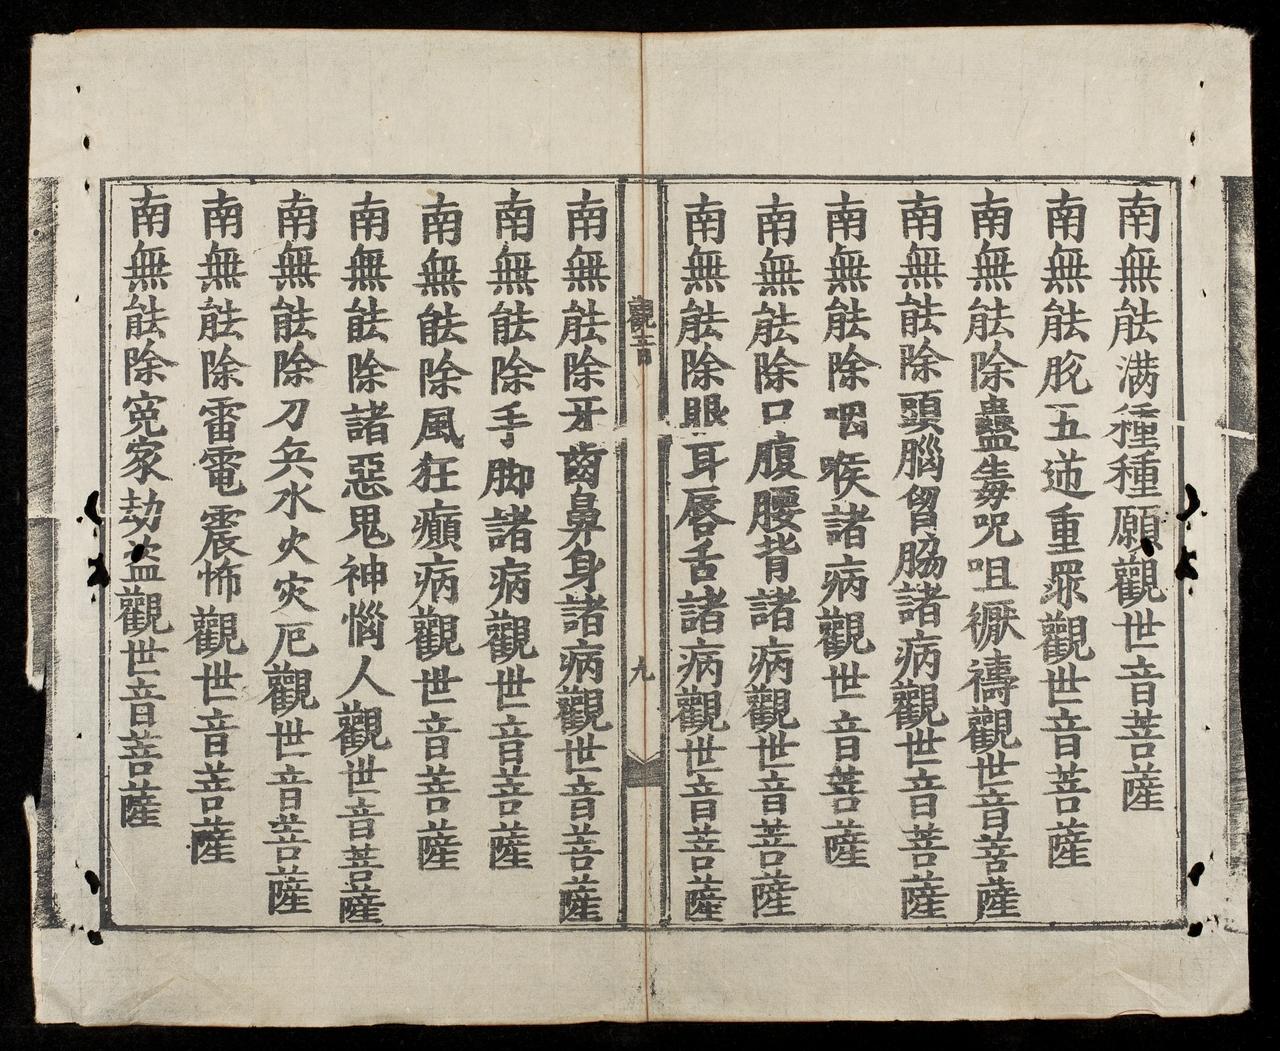 南無能满種種願觀世音菩薩
南無能脫五逆重罪觀世音菩薩
南無能除蠱毒呪咀禱觀世音菩薩
南無能除頭腦胷脇諸病觀世音菩薩
南無能除咽喉諸病觀世音菩薩
南無能除口腹腰背諸病觀世音菩薩
南無能除眼耳唇舌諸病觀世音菩薩
觀
九
南無能除牙齒鼻身諸病觀世音菩薩
南無能除手脚諸病觀世音菩薩
南無能除風狂癲病觀世音菩薩
南無能除諸惡鬼神惱人觀世音菩薩
南無能除刀兵水火灾厄觀世音菩薩
南無能除雷電震怖觀世音菩薩
南無能除寃家劫盗觀世音菩薩